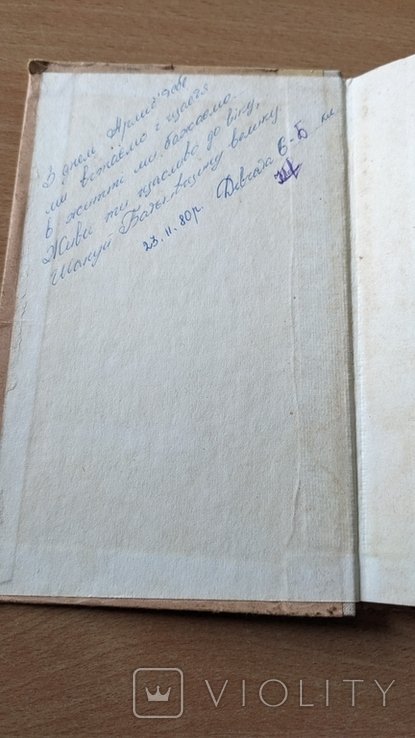 З днем Армії тебе
ми вітаємо і щастя
в житті ми бажаємо.
Живи ти щасливо до віку,
Шануй Батьківщину велику.
23. ІІ. 80р. Дівчата 6-Б кл
VIOLITY